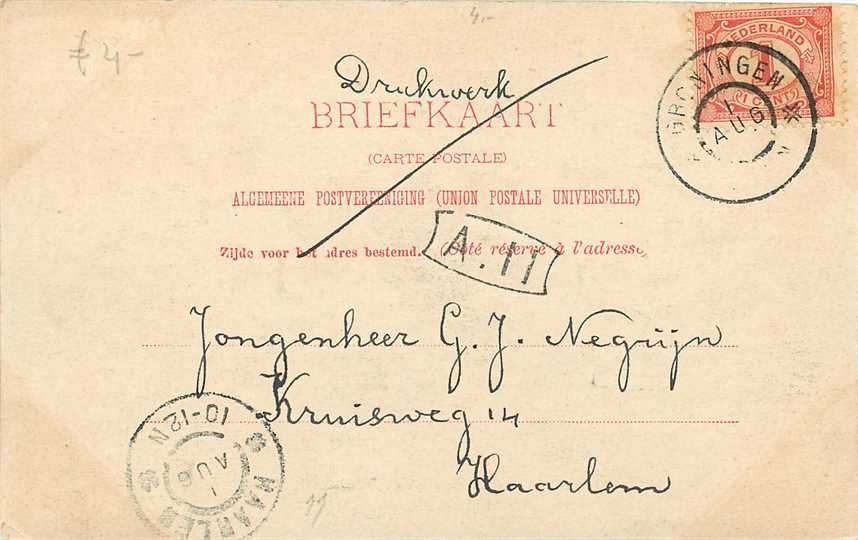 4.-
f 4-
NEDERLAND
1 CENT
GRONINGEN
1 AUG
Drukwerk
BRIEFKAART
(CARTE POSTALE)
ALGEMEENE POSTVEREENIGING (UNION POSTALE UNIVERSELLE)
Zijde voor het adres bestemd. (Côté réservé à l'adresse)
A.11
Jongenheer G. J. Negrijn
Kruisweg 14
Haarlem
10-12N
1 AUG
HAARLEM